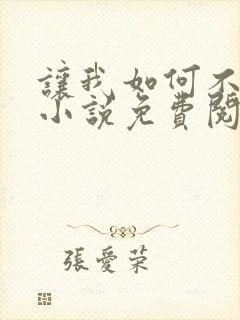 讓我如何不
小說免費閱
張愛荣